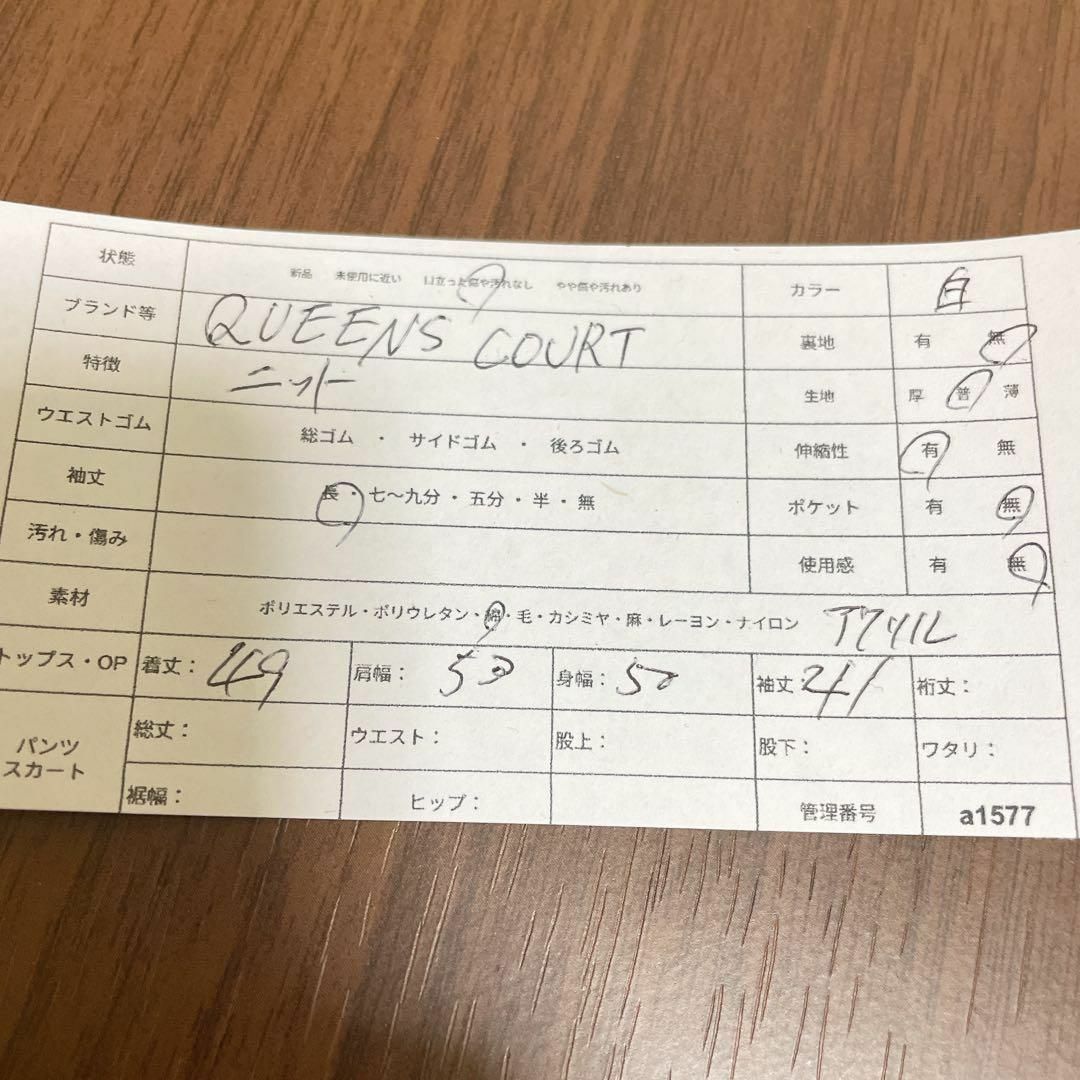 状態 新品 未使用に近い 目立った傷や汚れなし やや傷や汚れあり カラー 白
ブランド等 QUEENS COURT 裏地 有 無
特徴 ニット 生地 厚 普 薄
ウエストゴム 総ゴム ・ サイドゴム ・ 後ろゴム 伸縮性 有 無
袖丈 長・七〜九分・五分・半・無 ポケット 有 無
汚れ・傷み 使用感 有 無
素材 ポリエステル・ポリウレタン・綿・毛・カシミヤ・麻・レーヨン・ナイロン アクリル
トップス・OP 着丈: 49 肩幅: 53 身幅: 50 袖丈: 41 裄丈:
パンツ
スカート
総丈: ウエスト: 股上: 股下: ワタリ:
裾幅: ヒップ: 管理番号 a1577